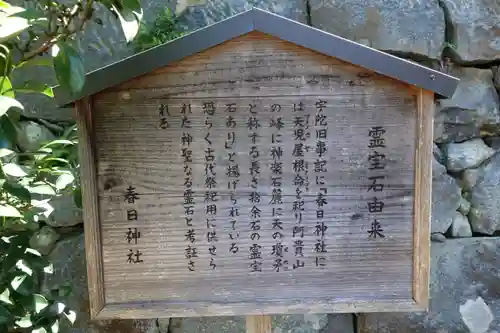 霊宝石由来
宇陀旧事記に「春日神社に
は天児屋根命を祀り阿貴山
の峰に神楽石麓に天の瓊矛
と称する長さ拾余石の霊宝
石あり」と揚げられている
恐らく古代祭祀用に供せら
れた神聖なる霊石と考証さ
れる
春日神社